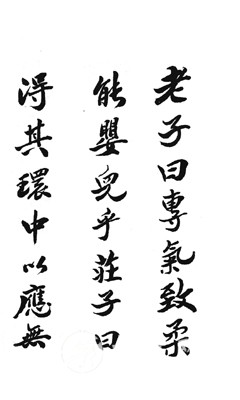 老子曰專氣致柔
能嬰兒乎莊子曰
得其環中以應無